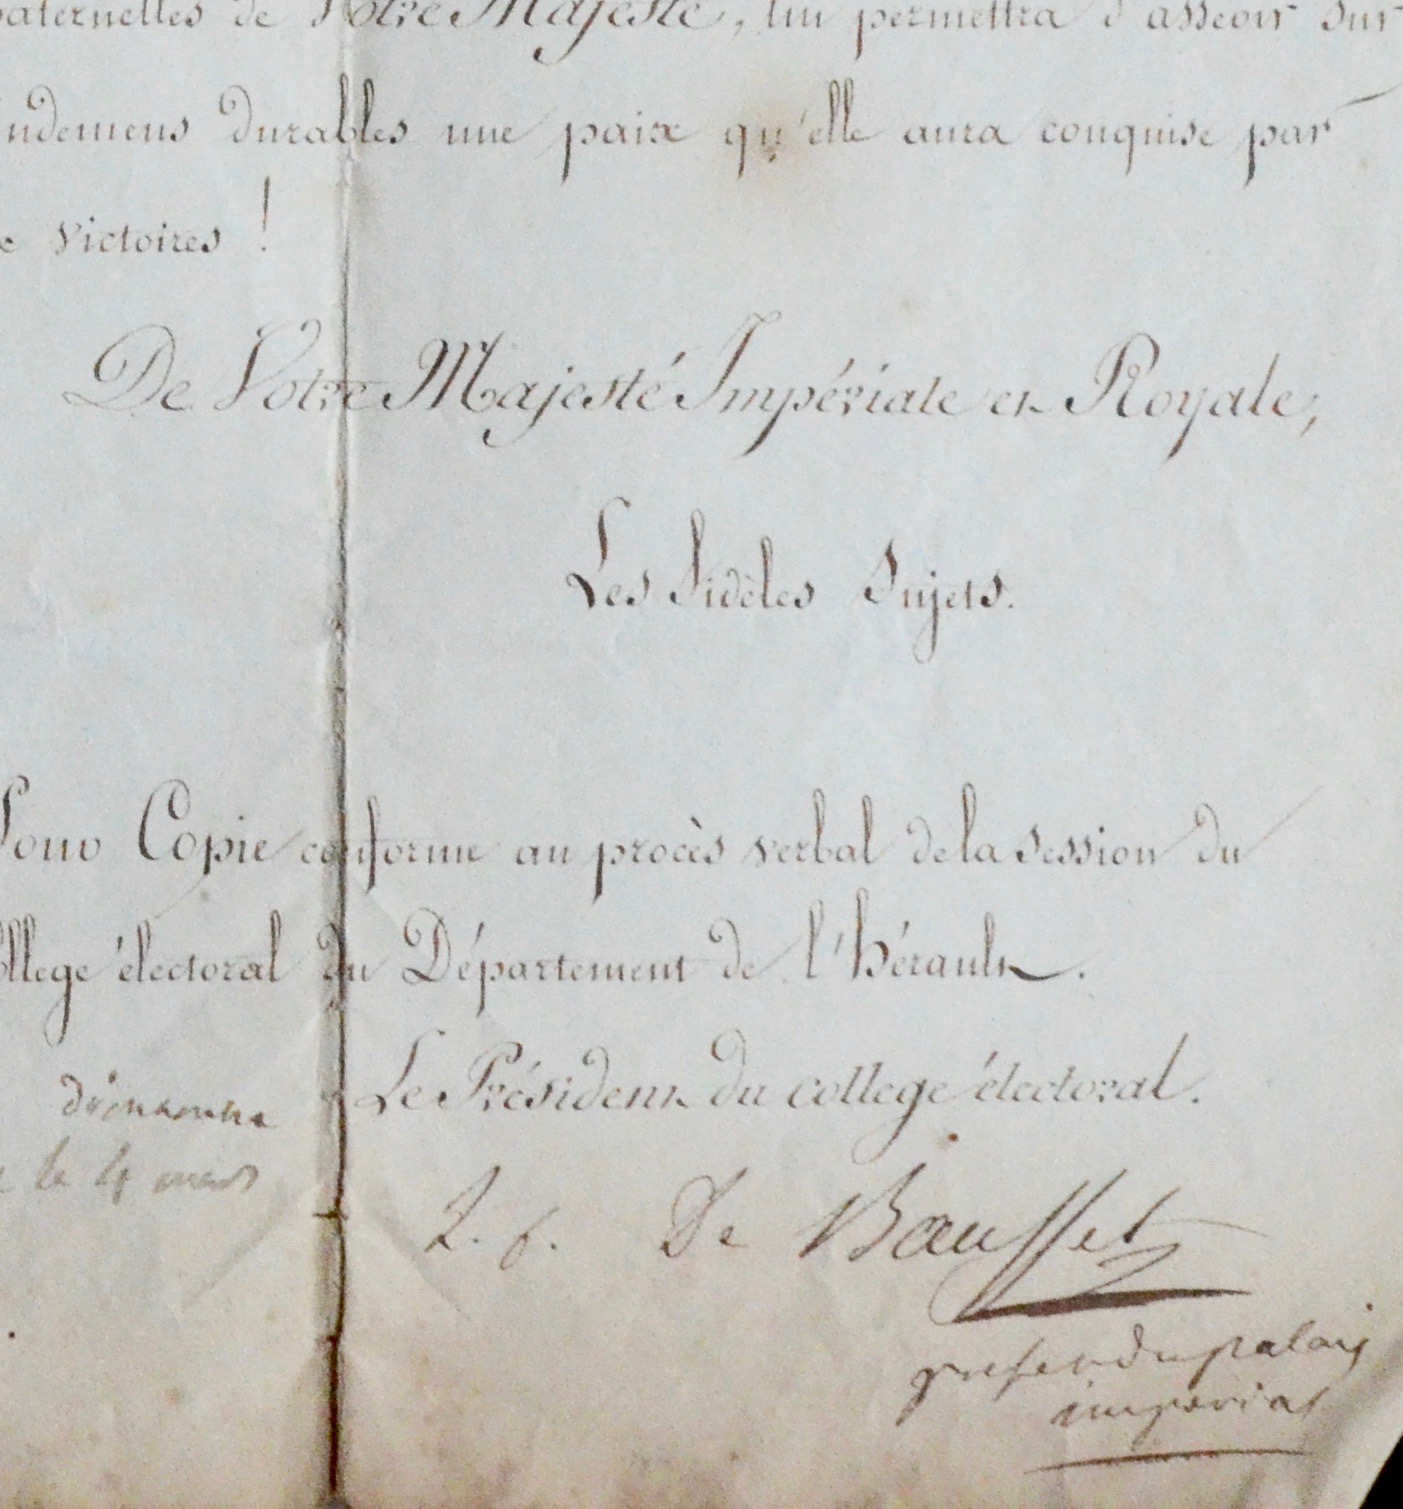 paternelles de Votre Majesté, lui permettra d'asseoir sur
ndemens durables une paix qu'elle aura conquise par
e victoires !
De Votre Majesté Impériale et Royale,
Les fidèles Sujets.
Pour Copie conforme au procès verbal de la session du
ollege électoral du Département de l'hérault.
Le Président du college électoral.
le 4 mars
L. f. De Bausset
prefet du palais
imperial